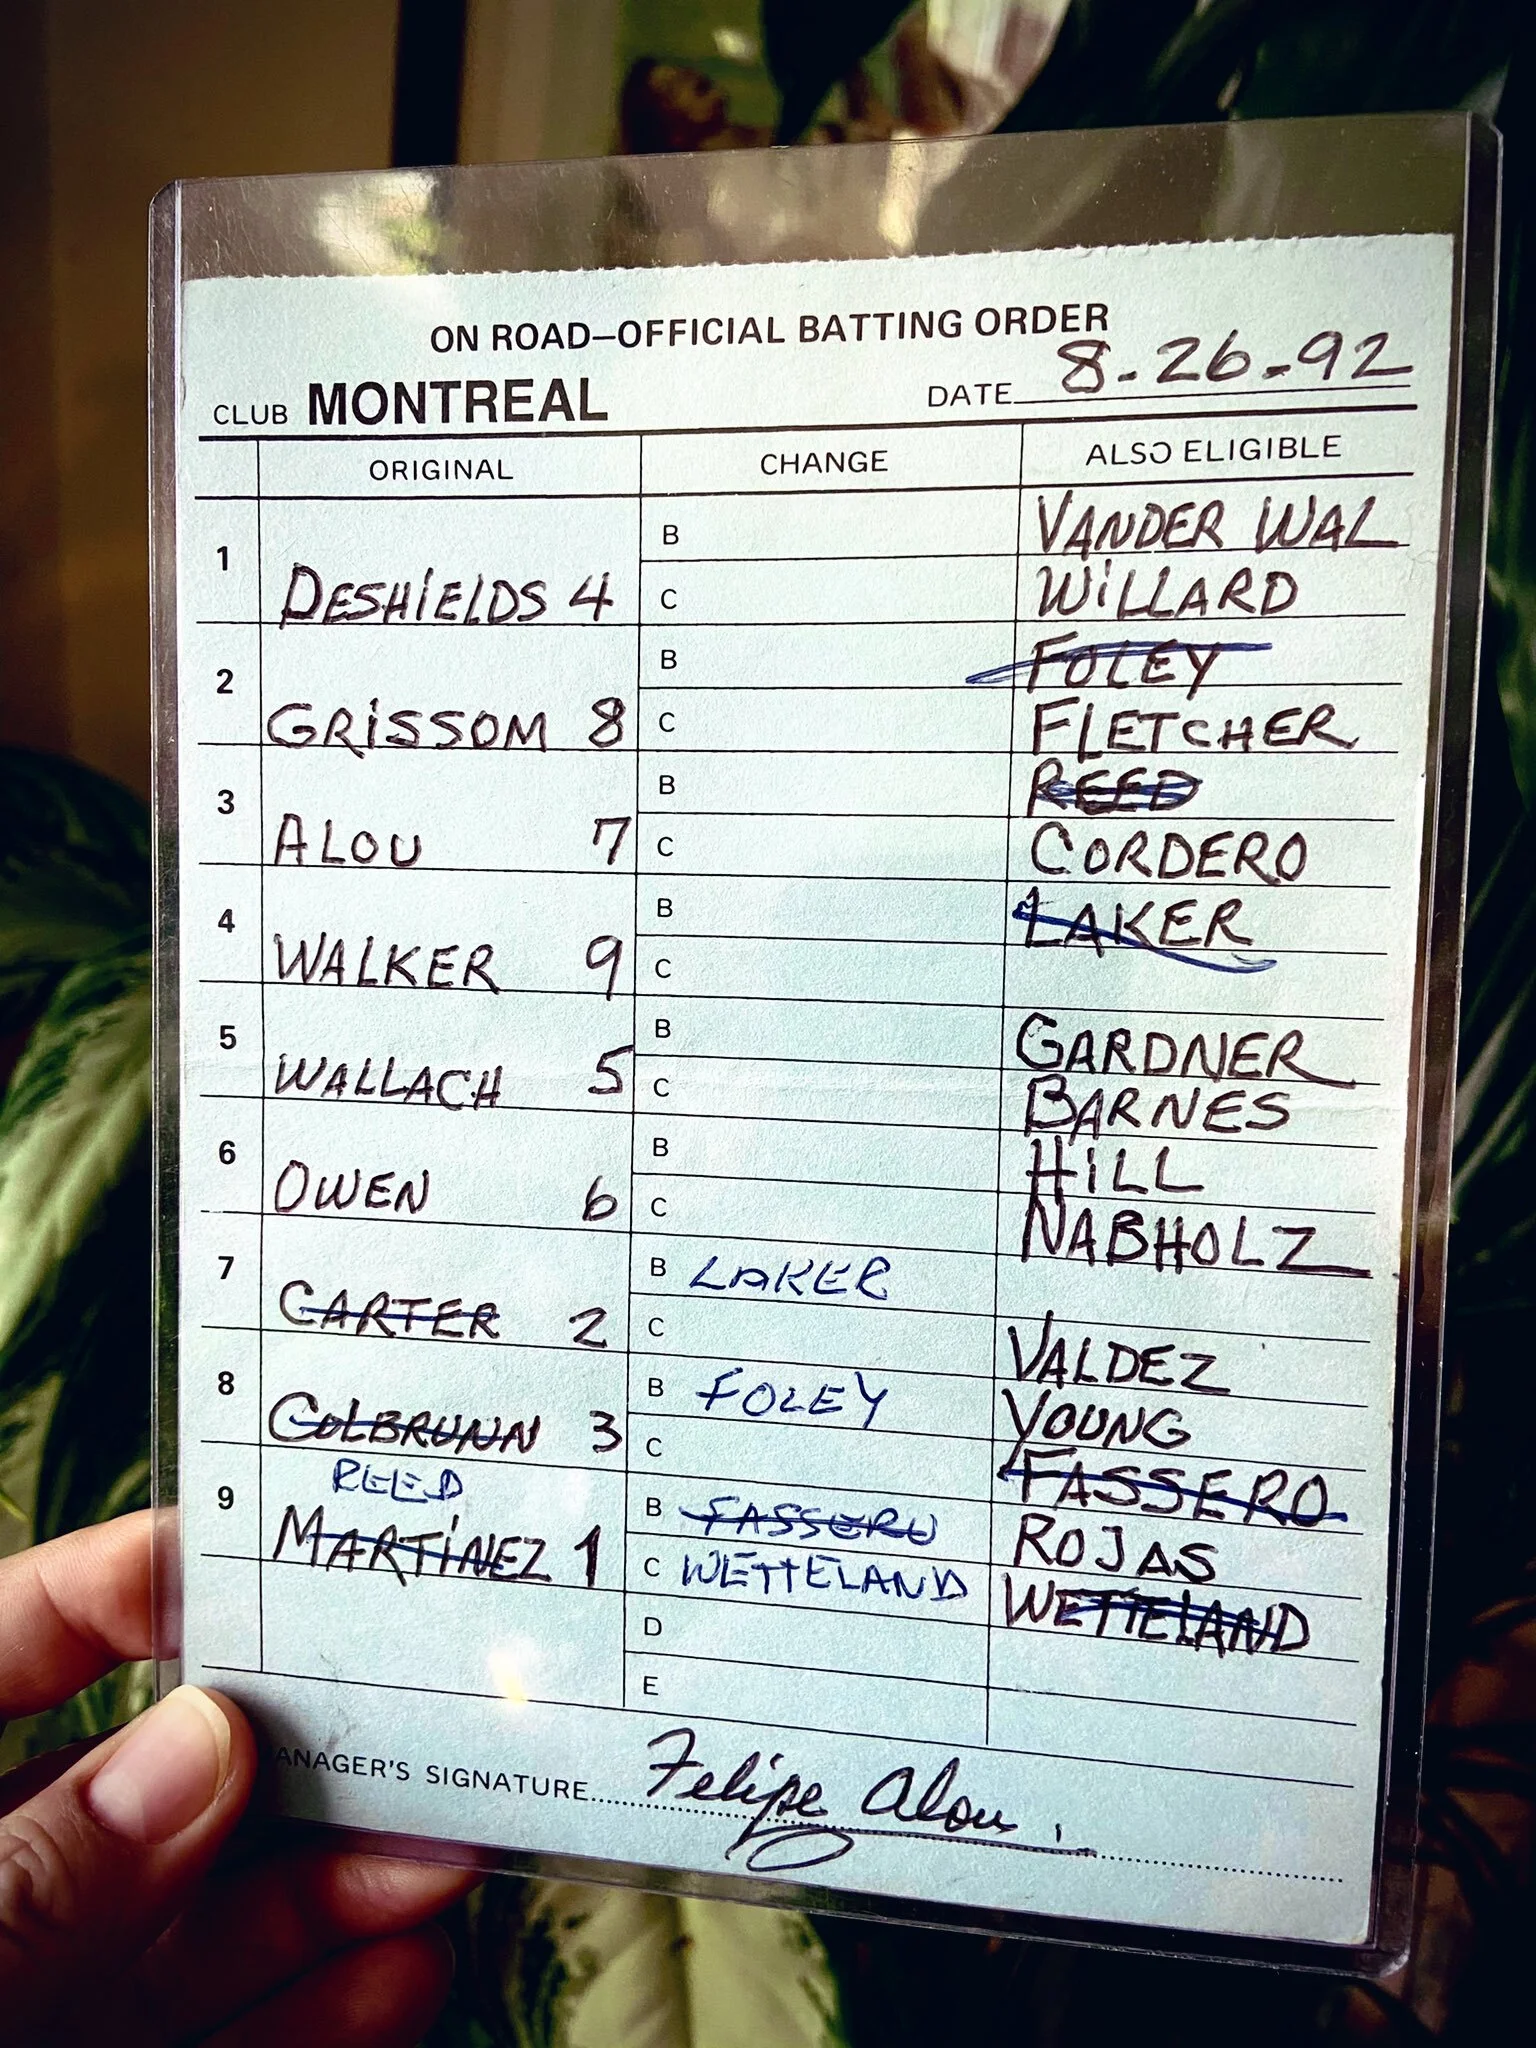 ON ROAD—OFFICIAL BATTING ORDER
CLUB MONTREAL DATE 8-26-92
ORIGINAL CHANGE ALSO ELIGIBLE
1 DESHiELDS 4 B VANDER WAL
C WiLLARD
2 GRiSSOM 8 B FOLEY
C FLETCHER
3 ALOU 7 B REED
C CORDERO
4 WALKER 9 B LAKER
C
5 WALLACH 5 B GARDNER
C BARNES
6 OWEN 6 B HiLL
C NABHOLZ
7 CARTER 2 B LAKER
C VALDEZ
8 COLBRUNN 3 B FOLEY YOUNG
C FASSERO
9 REED B FASSERO ROJAS
MARTiNEZ 1 C WETTELAND WETTELAND
D
E
ANAGER'S SIGNATURE Felipe Alou